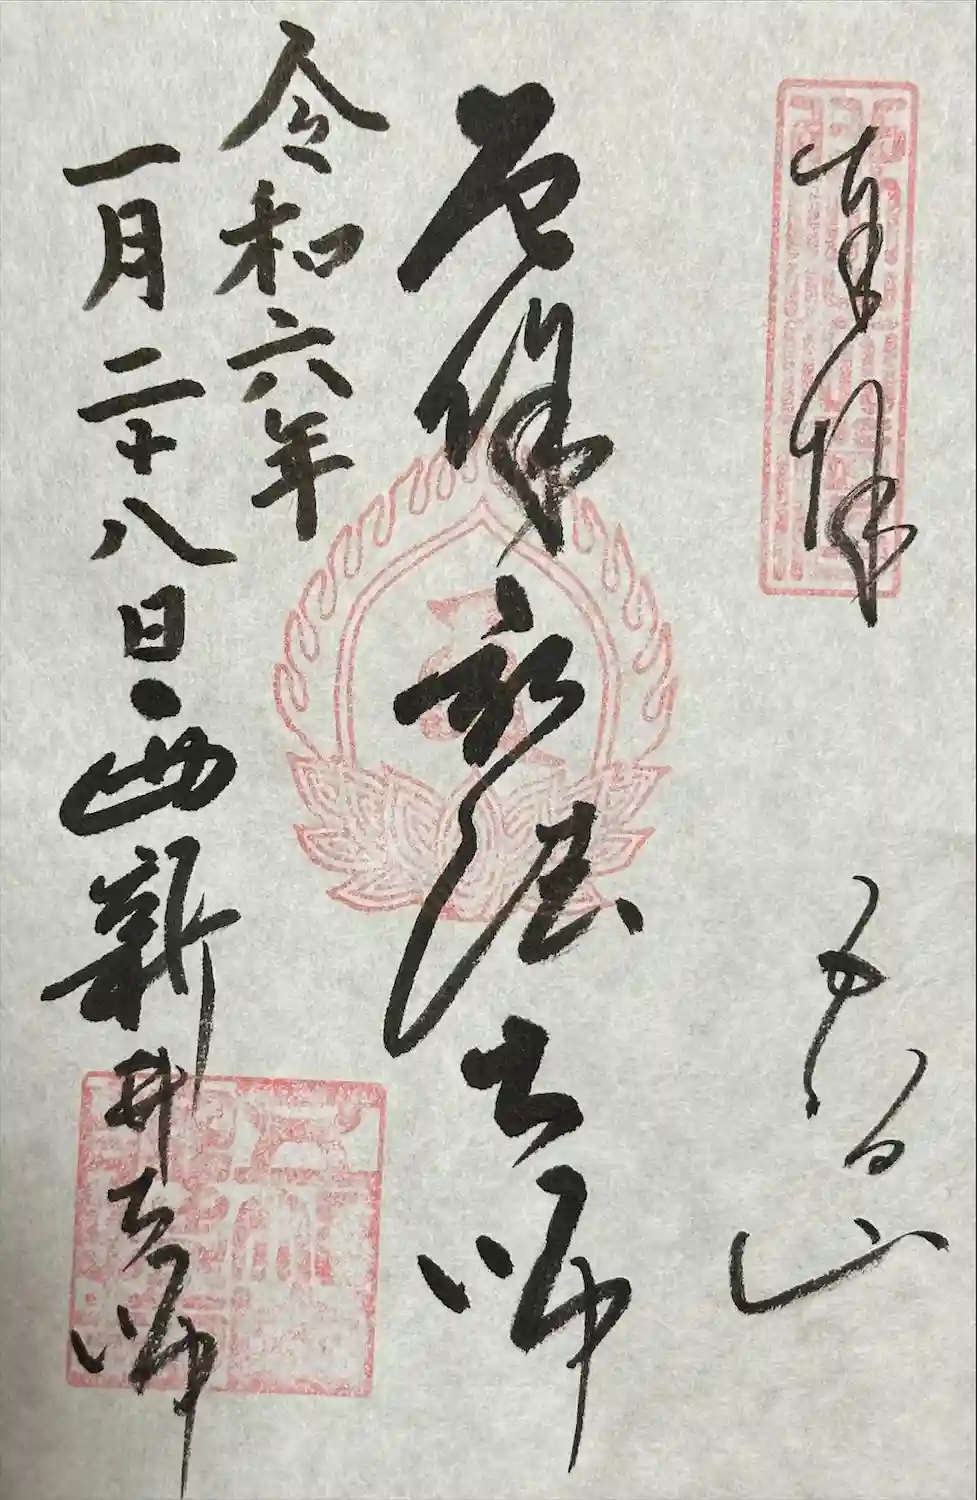 奉拝 五智山
厄除弘法大師
令和六年
一月二十八日 西新井大師